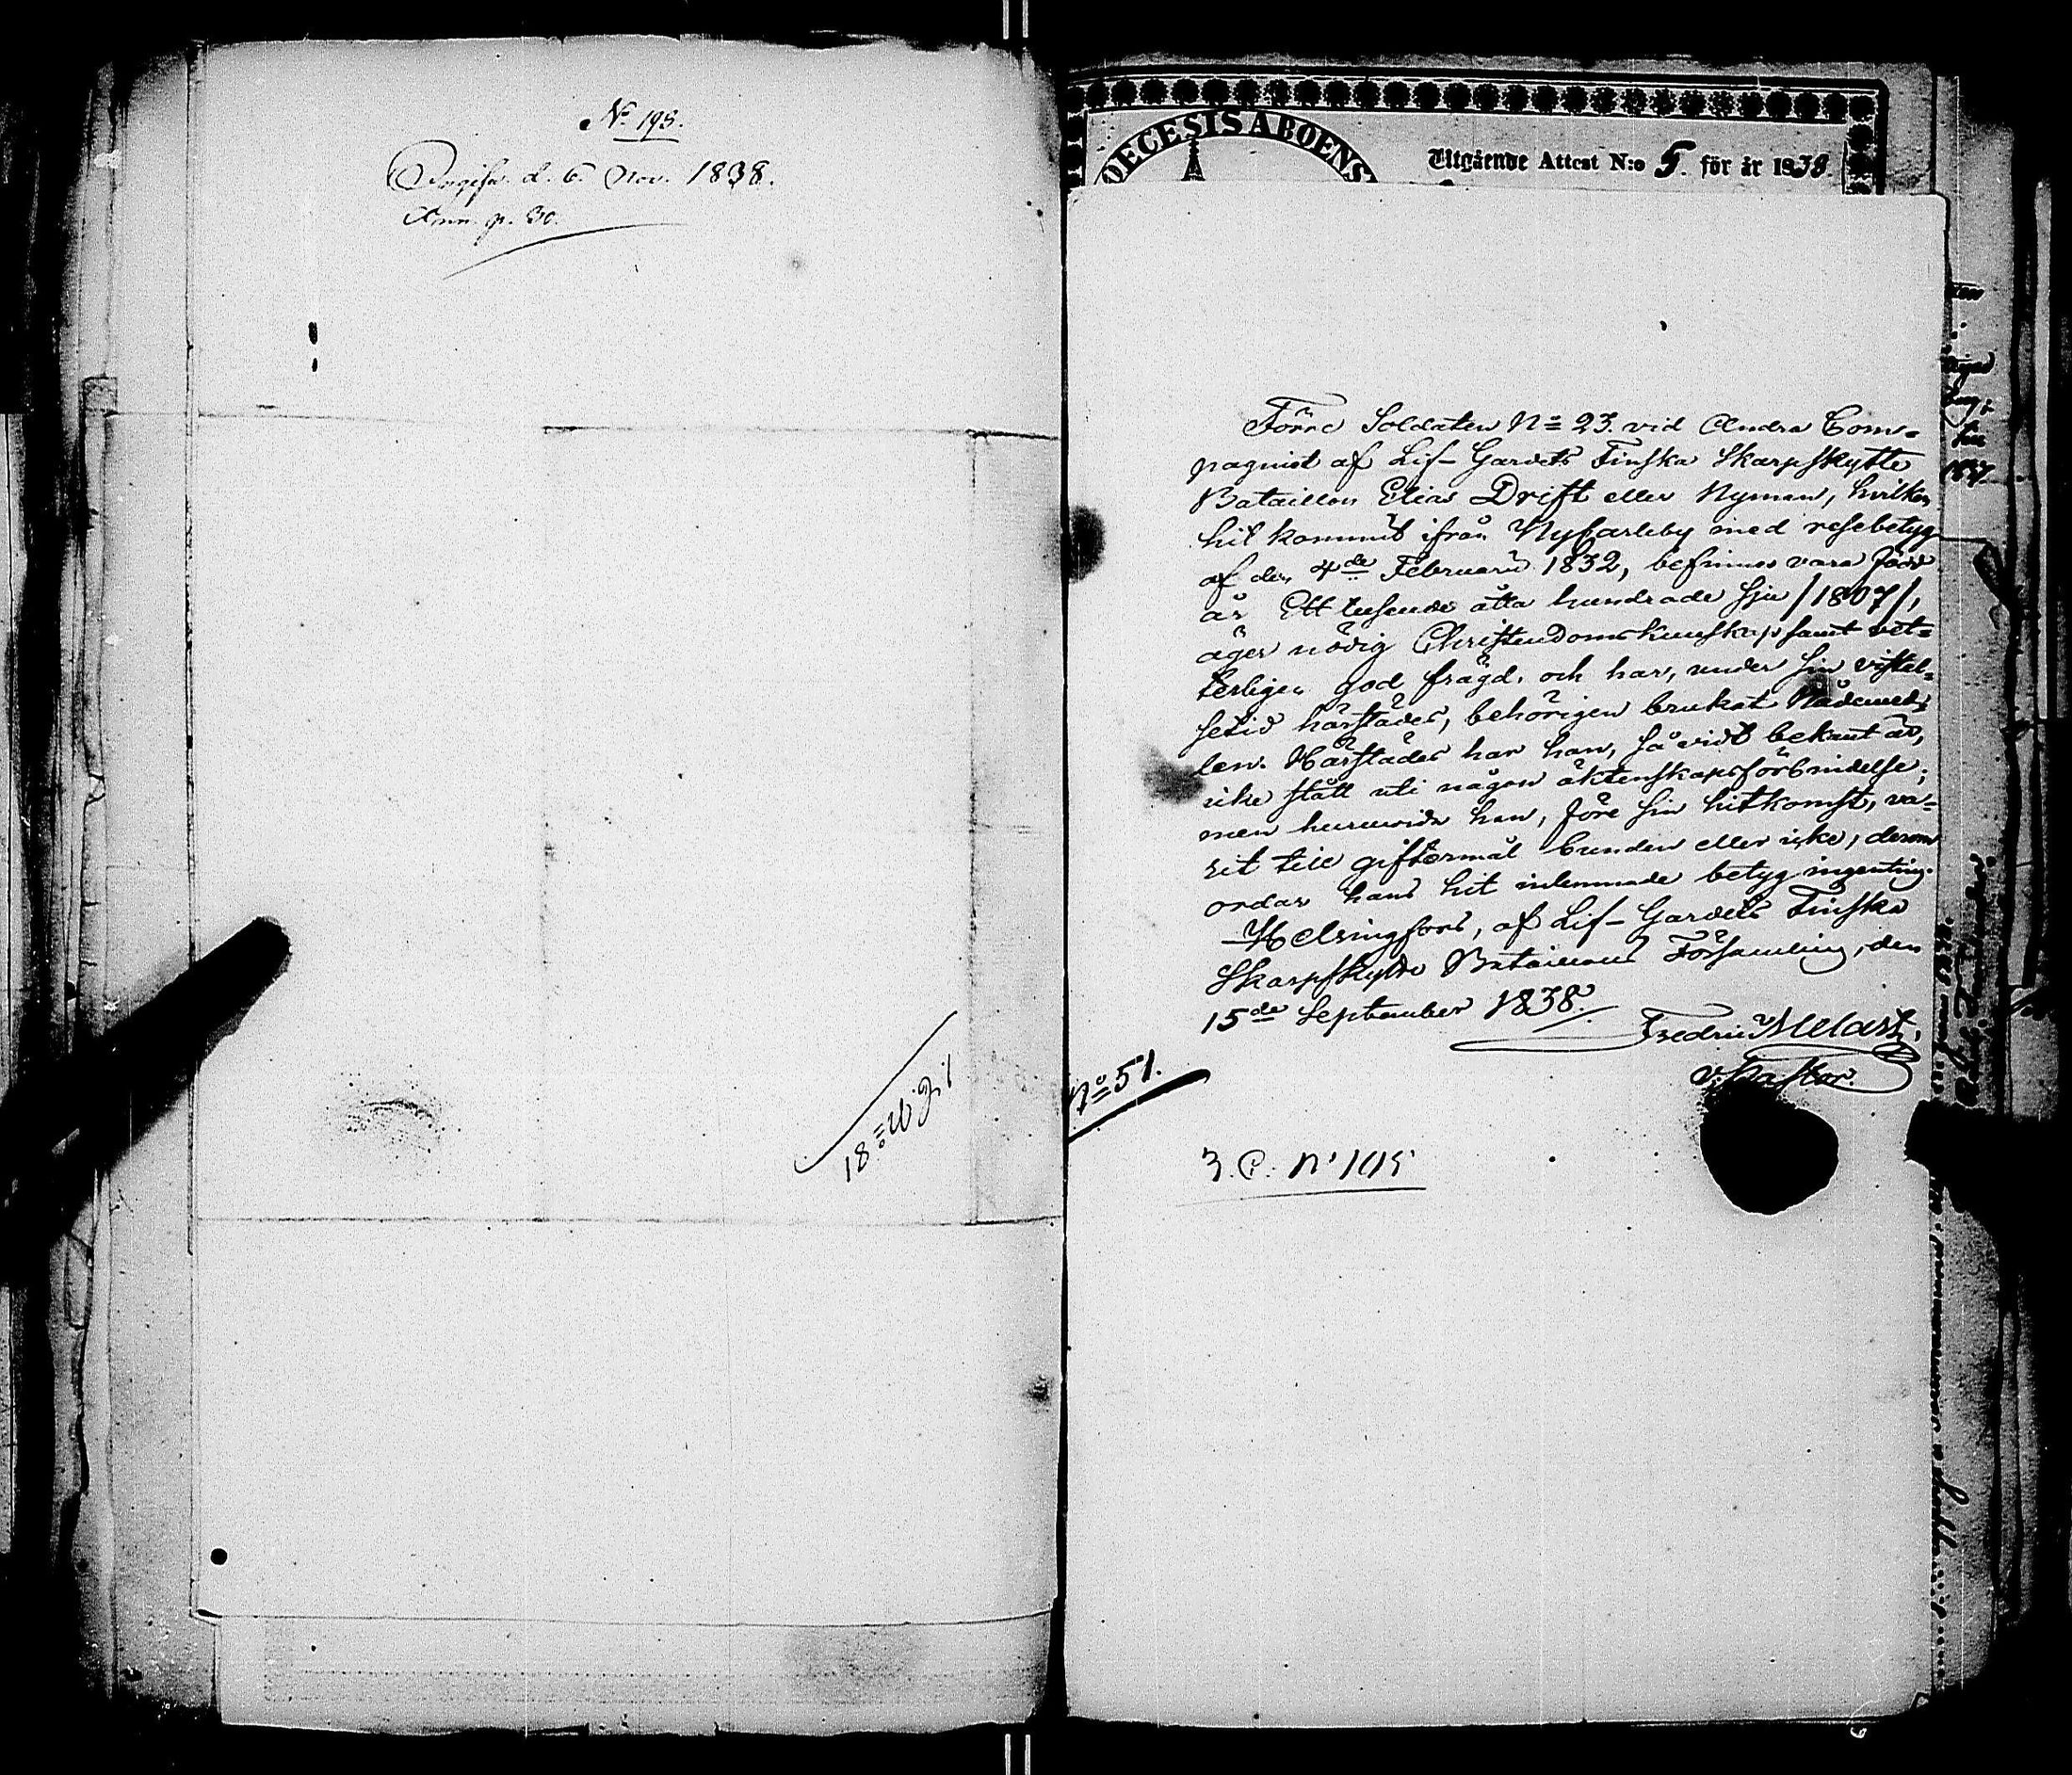 No 193.
d. 6. Nov. 1838.
Ann. p. 30.
DECESIS ABOENS
Utgående Attest N:o 5. för år 1838.
Förre Soldaten No 23. vid Andra Com-
pagniet af Lif-Gardets Finska Skarpskytte
Bataillon Elias Drift eller Nyman, hvilken
hit kommit ifrån Nykarleby med resebetyg
af den 4de Februarii 1832, befinnes vara född
år Ett tusende åtta hundrade sju /1807/,
äger nödig Christendoms kunskap samt vet-
terligen god frägd, och har, under sin vistel-
setid härstädes, behörigen brukat Nådemed-
len. Härstädes har han, så vidt bekant är,
icke stått uti någon äktenskapsförbindelse;
men huruvida han, före sin hitkomst, va-
rit till giftermål bunden eller icke, derom
ordar hans hit inlemnade betyg ingenting.
Helsingfors, af Lif-Gardets Finska
Skarpskytte Bataillons Församling, den
15de September 1838.
Fredric
v. Pastor.
No 51.
3. C. No 105